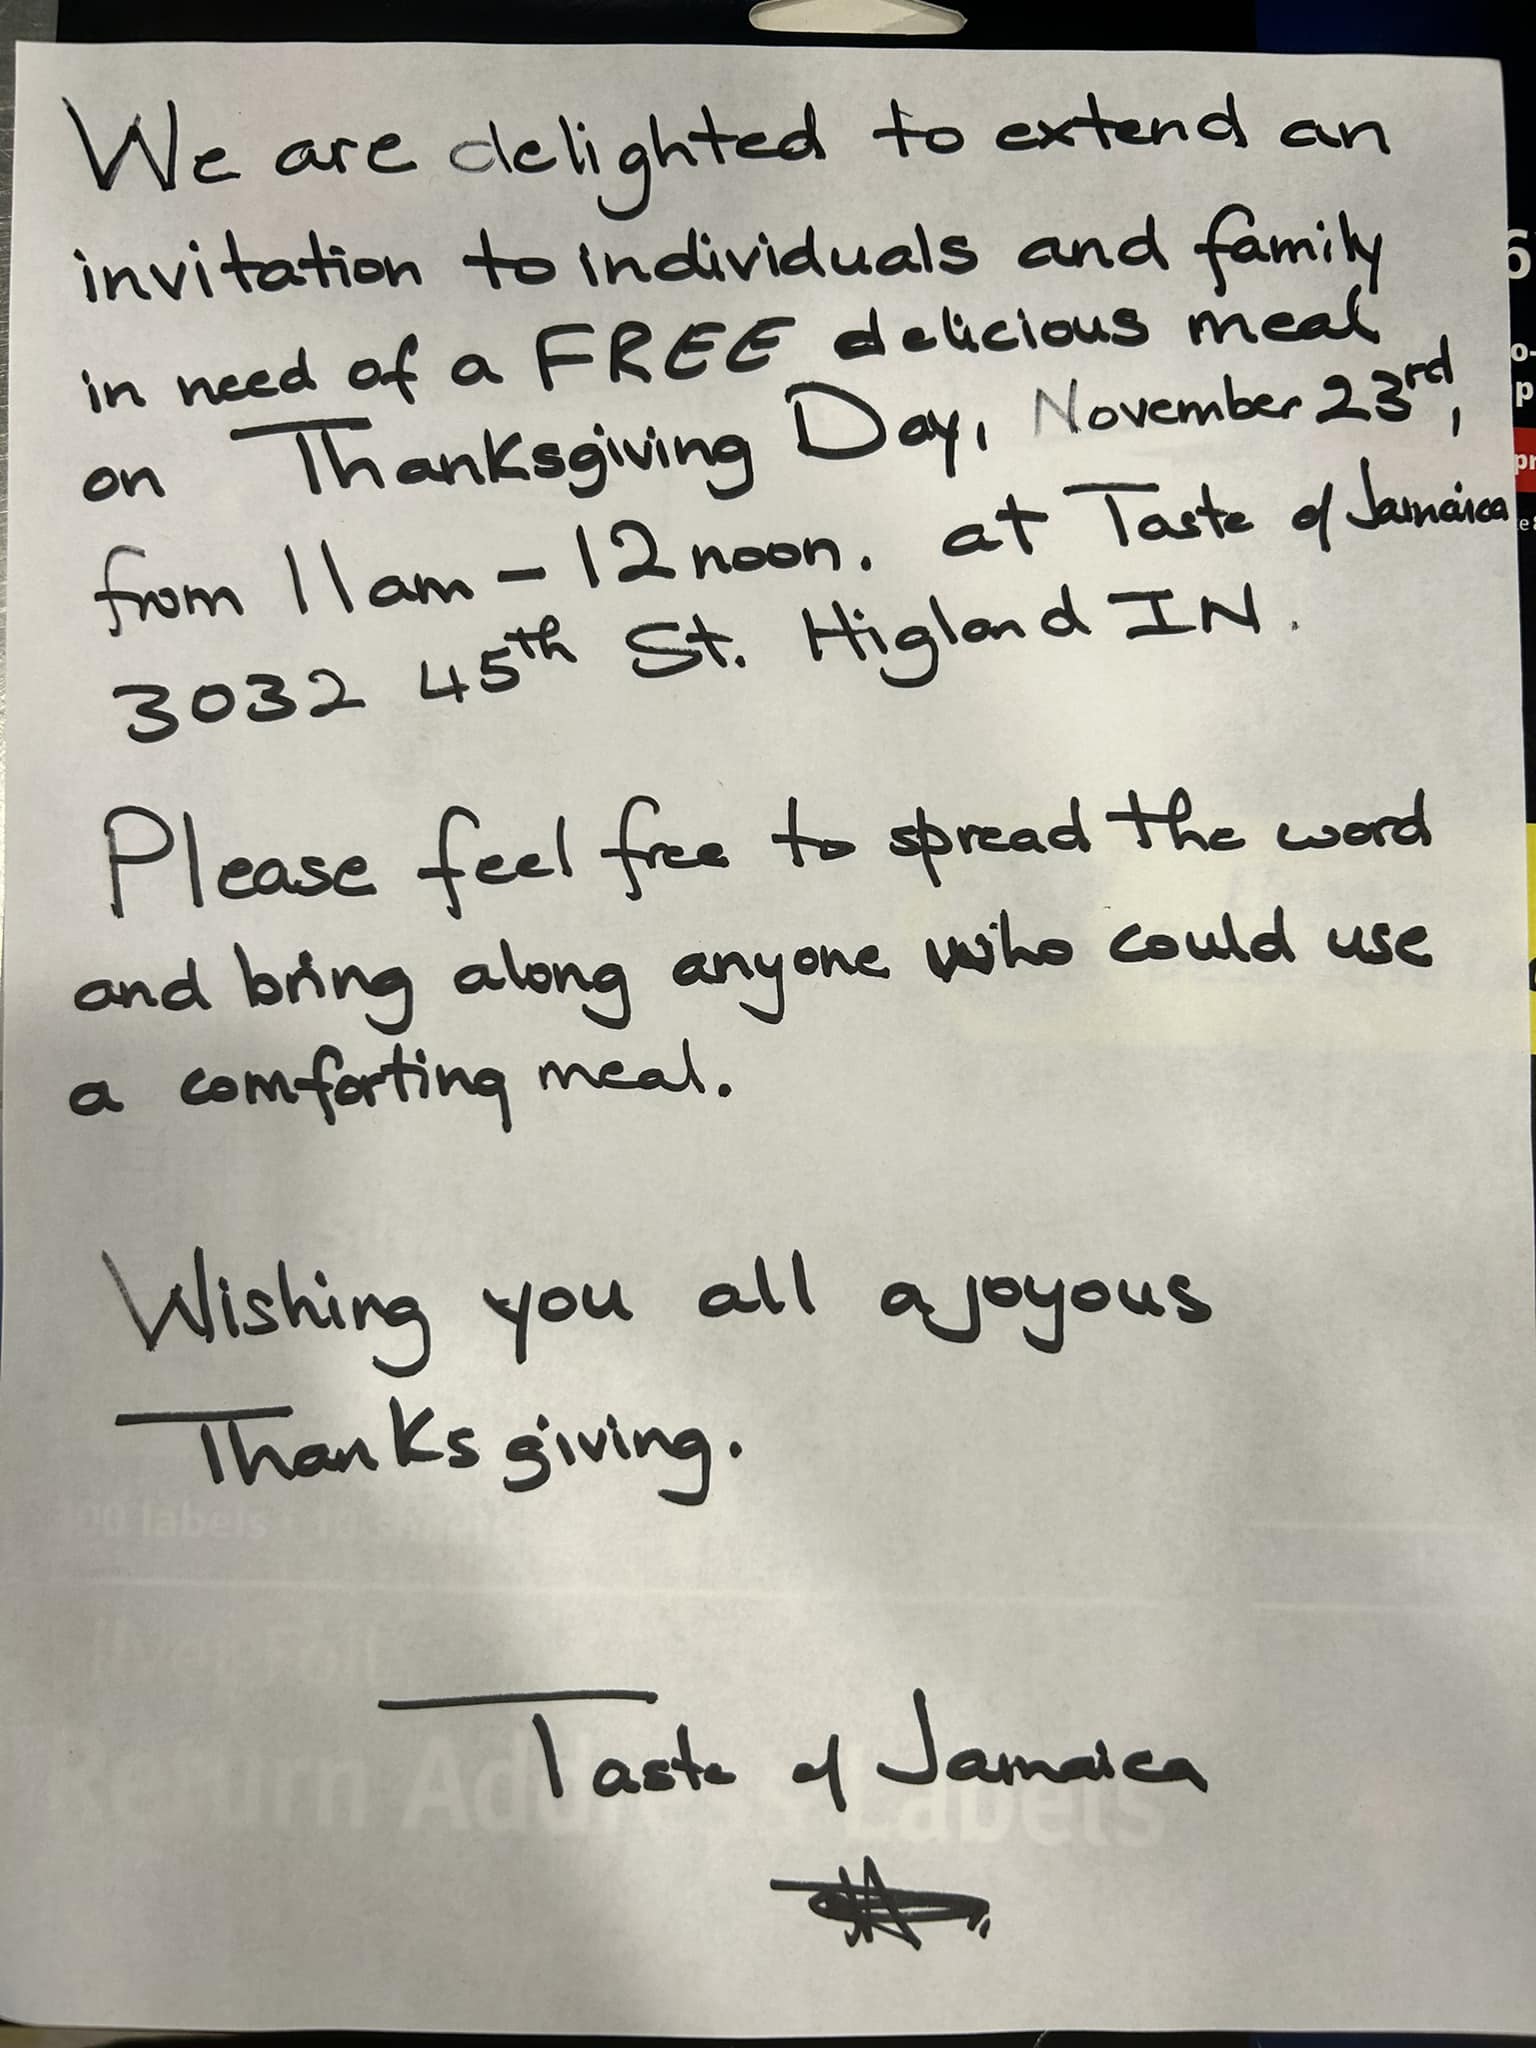 We are delighted to extend an
invitation to individuals and family
in need of a FREE delicious meal
on Thanksgiving Day, November 23rd,
from 11am - 12 noon. at Taste of Jamaica
3032 45th St. Higland IN.
Please feel free to spread the word
and bring along anyone who could use
a comforting meal.
Wishing you all a joyous
Thanksgiving.
Taste of Jamaica
Return Address Labels